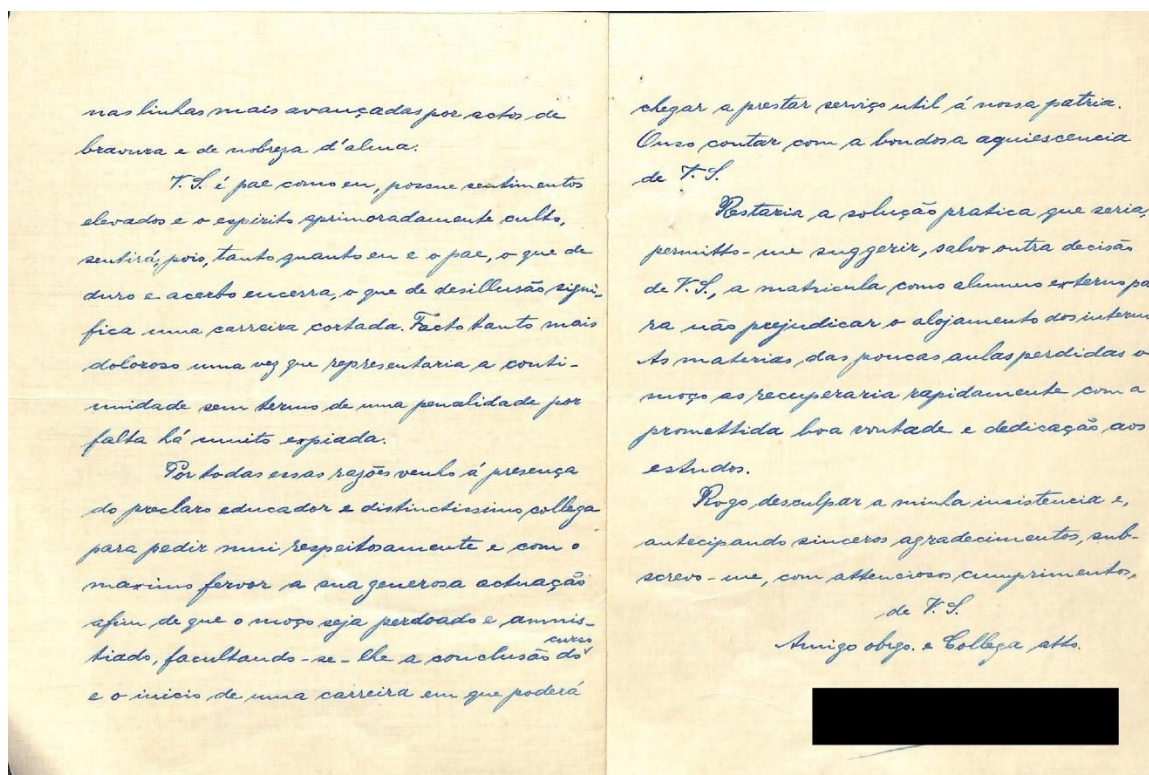 nas linhas mais avançadas por actos de
bravura e de nobreza d'alma.
V. S. é pae como eu, possue sentimentos
elevados e o espirito aprimoradamente culto,
sentirá, pois, tanto quanto eu e o pae, o que de
duro e acerbo encerra, o que de desillusão signi-
fica uma carreira cortada. Facto tanto mais
doloroso uma vez que representaria a conti-
nuidade sem termo de uma penalidade por
falta há muito expiada.
Por todas essas razões venho á presença
do preclaro educador e distinctissimo collega
para pedir mui respeitosamente e com o
maximo fervor a sua generosa actuação
afim de que o moço seja perdoado e amnis-
tiado, facultando-se-lhe a conclusão do curso
e o inicio de uma carreira em que poderá
chegar a prestar serviço util á nossa patria.
Ouso contar com a bondosa aquiescencia
de V. S.
Restaria a solução pratica que seria,
permitto-me suggerir, salvo outra decisão
de V. S., a matricula como alumno externo pa
ra não prejudicar o alojamento dos intern
As materias das poucas aulas perdidas o
moço as recuperaria rapidamente com a
promettida boa vontade e dedicação aos
estudos.
Rogo desculpar a minha insistencia e,
antecipando sinceros agradecimentos, sub-
screvo-me, com attenciosos cumprimentos,
de V. S.
Amigo obrgo. e Collega atto.